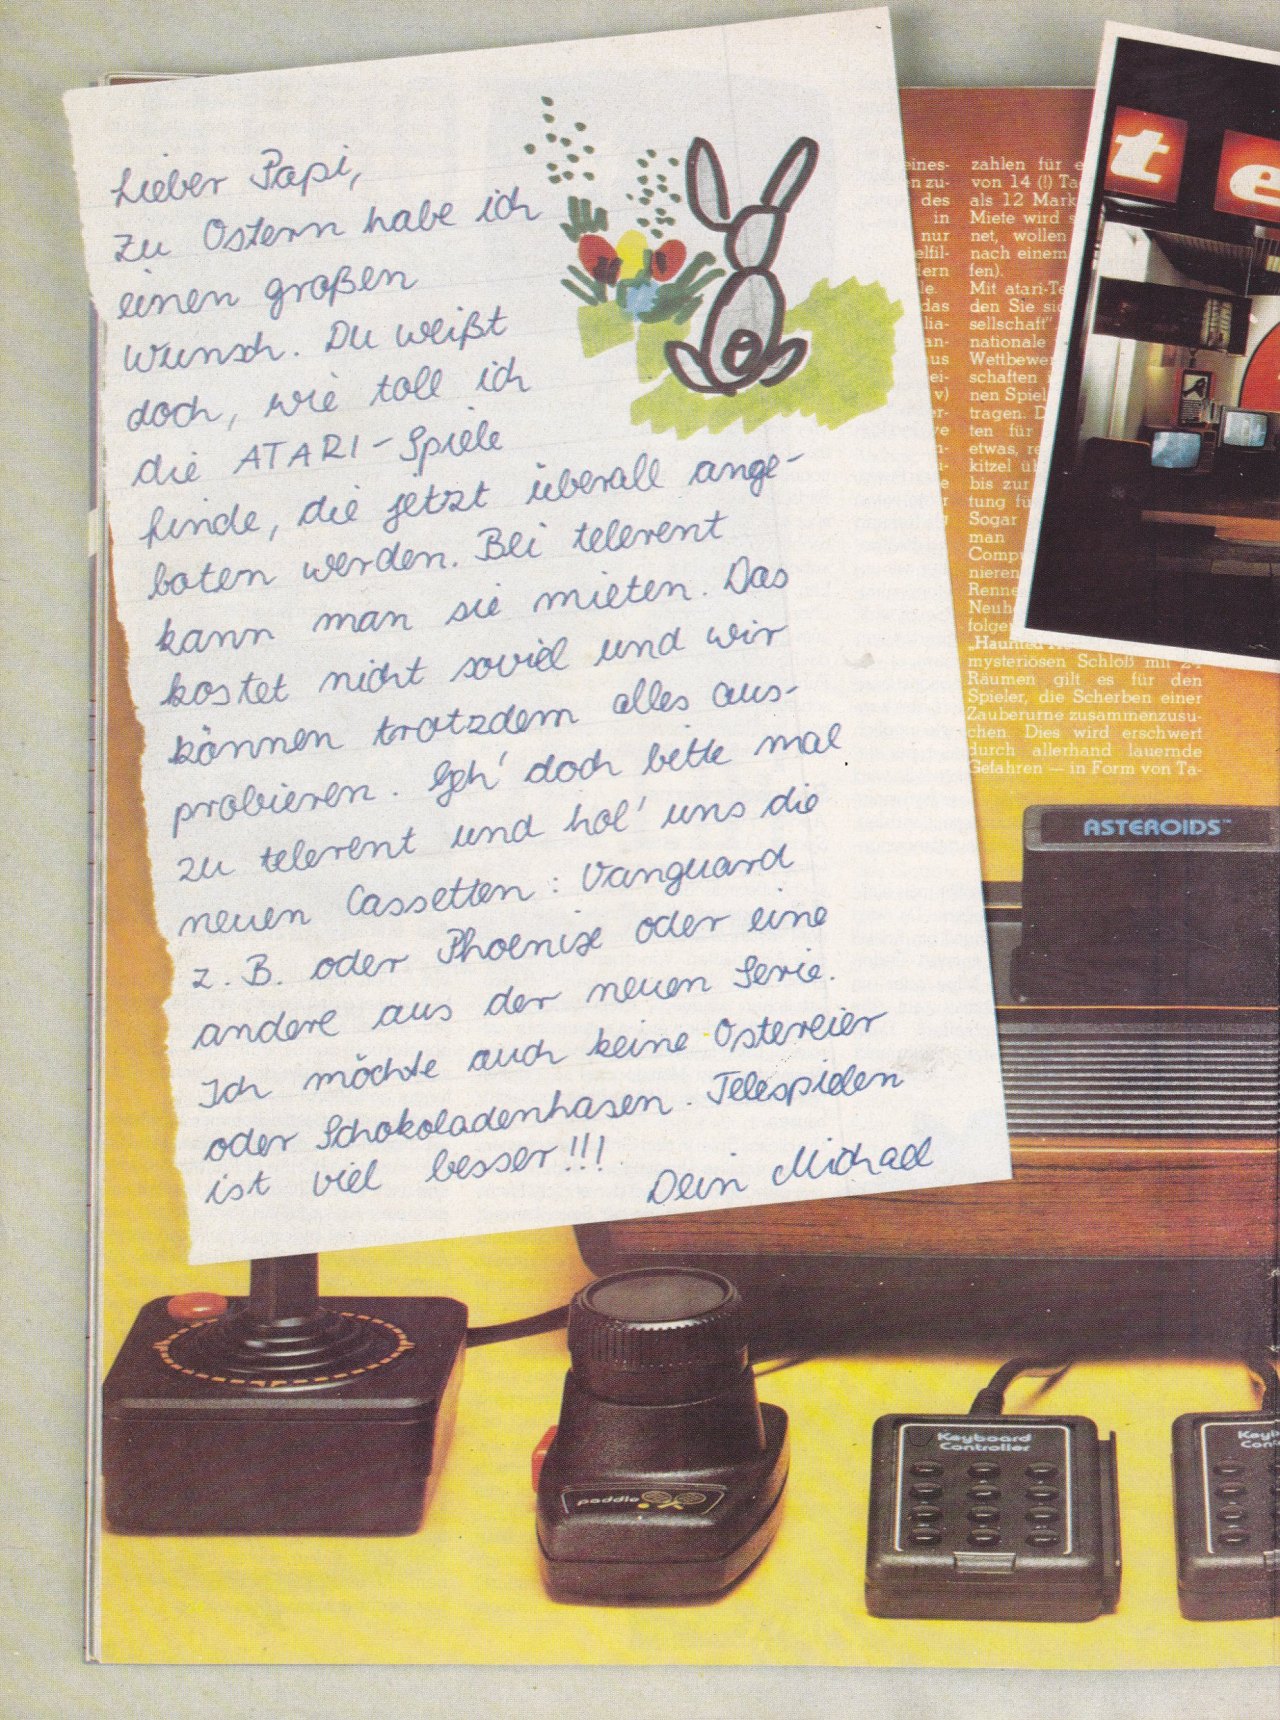 Lieber Papi,
zu Ostern habe ich
einen großen
Wunsch. Du weißt
doch, wie toll ich
die ATARI-Spiele
finde, die jetzt überall ange-
boten werden. Bei telerent
kann man sie mieten. Das
kostet nicht soviel und wir
können trotzdem alles aus-
probieren. Geh' doch bitte mal
zu telerent und hol' uns die
neuen Cassetten: Vanguard
z.B. oder Phoenix oder eine
andere aus der neuen Serie.
Ich möchte auch keine Ostereier
oder Schokoladenhasen. Telespielen
ist viel besser!!!
Dein Michael
eines-
zu-
des
in
nur
elfil-
dern
das
lia-
an-
aus
ei-
v)
er-
zahlen für
von 14 (!)
als 12 Mark
Miete wird
net, wollen
nach einem
fen).
Mit
den Sie
sellschaft"
nationale
schaften
nen Spiel
tragen.
ten für
etwas,
kitzel
bis zur
tung
Sogar
man
nieren
mysteriösen Schloß mit 24
Räumen gilt es für den
Spieler, die Scherben einer
Zauberurne zusammenzusu-
chen. Dies wird erschwert
durch allerhand lauernde
Gefahren — in Form von Ta-
te
ASTEROIDS™
paddle
Keyboard
Controller